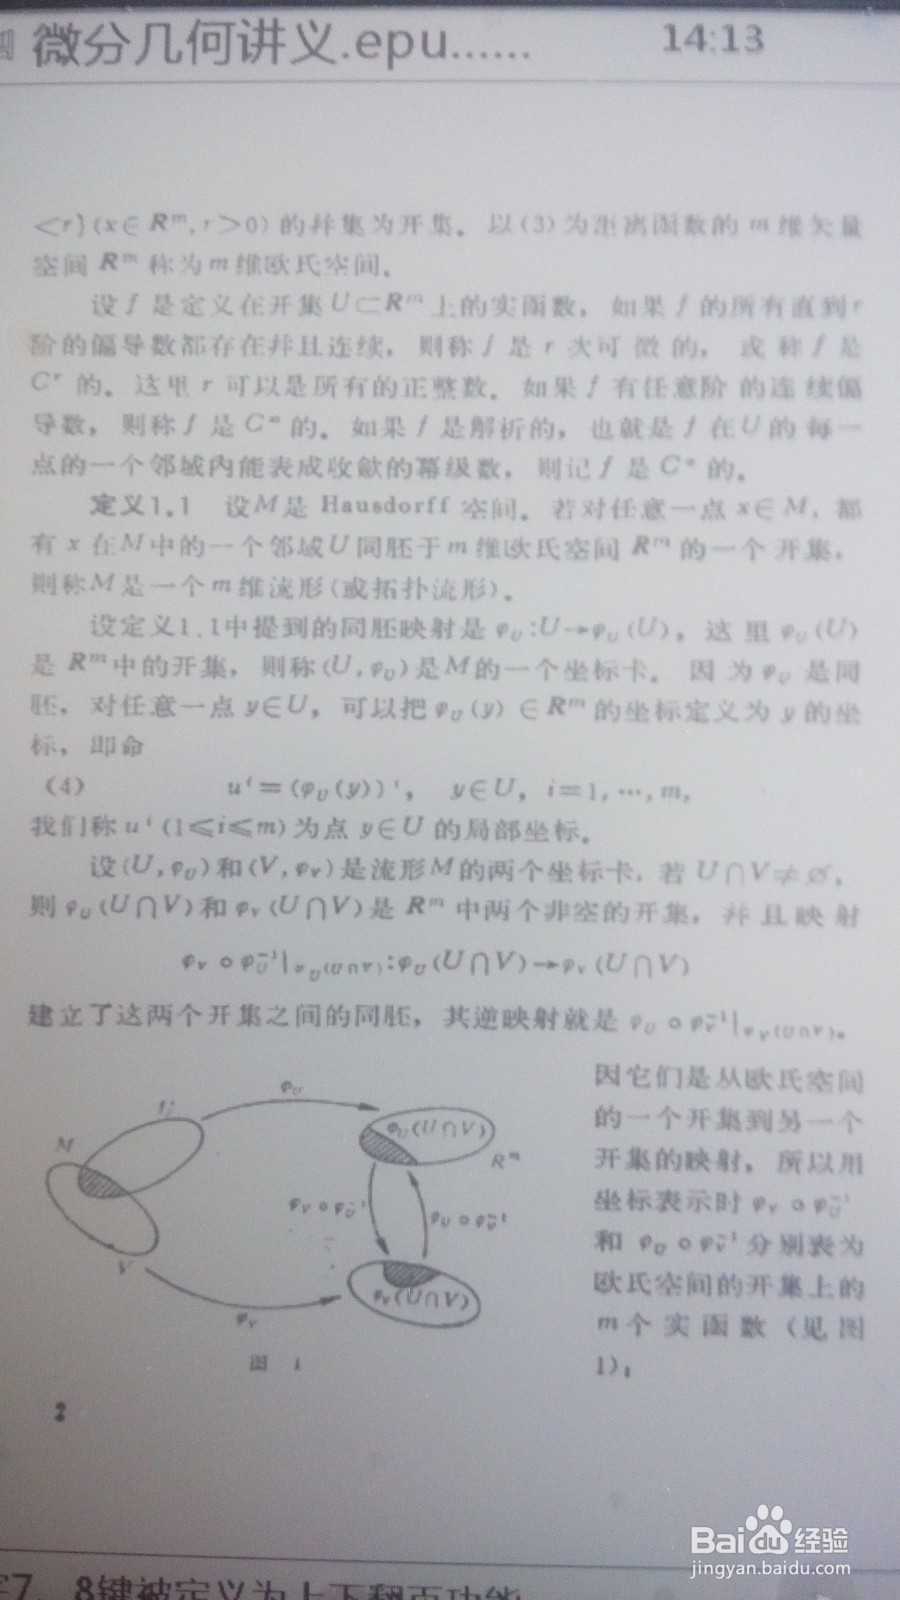 微分几何讲义.epu......
14:13
<r}(x∈Rᵐ,r>0)的并集为开集。以(3)为距离函数的m维矢量
空间Rᵐ称为m维欧氏空间。
设f是定义在开集U⊂Rᵐ上的实函数，如果f的所有直到r
阶的偏导数都存在并且连续，则称f是r次可微的，或称f是
Cʳ的。这里r可以是所有的正整数。如果f有任意阶的连续偏
导数，则称f是C^∞的。如果f是解析的，也就是f在U的每一
点的一个邻域内能表成收敛的幂级数，则记f是C^ω的。
定义1.1 设M是Hausdorff空间。若对任意一点x∈M，都
有x在M中的一个邻域U同胚于m维欧氏空间Rᵐ的一个开集，
则称M是一个m维流形(或拓扑流形)。
设定义1.1中提到的同胚映射是φ_U:U→φ_U(U)，这里φ_U(U)
是Rᵐ中的开集，则称(U,φ_U)是M的一个坐标卡。因为φ_U是同
胚，对任意一点y∈U，可以把φ_U(y)∈Rᵐ的坐标定义为y的坐
标，即命
(4) uⁱ=(φ_U(y))ⁱ, y∈U, i=1,…,m,
我们称uⁱ(1≤i≤m)为点y∈U的局部坐标。
设(U,φ_U)和(V,φ_V)是流形M的两个坐标卡，若U∩V≠∅，
则φ_U(U∩V)和φ_V(U∩V)是Rᵐ中两个非空的开集，并且映射
φ_V∘φ_U⁻¹|φ_U(U∩V):φ_U(U∩V)→φ_V(U∩V)
建立了这两个开集之间的同胚，其逆映射就是φ_U∘φ_V⁻¹|φ_V(U∩V)。
因它们是从欧氏空间
的一个开集到另一个
开集的映射，所以用
坐标表示时φ_V∘φ_U⁻¹
和φ_U∘φ_V⁻¹分别表为
欧氏空间的开集上的
m个实函数(见图
1):
M
U
φ_U
φ_U(U∩V)
Rᵐ
φ_V∘φ_U⁻¹
φ_U∘φ_V⁻¹
V
φ_V
φ_V(U∩V)
图 1
2
7、8键被定义为上下翻页功能
Baidu经验
jingyan.baidu.com